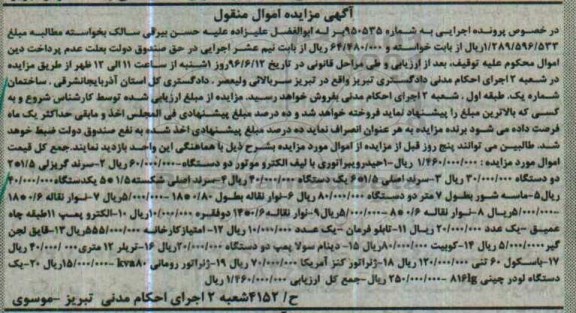 آگهی مزایده اموال منقول
در خصوص پرونده اجرایی به شماره ۹۵۰۵۳۵ له ابوالفضل علیزاده علیه حسن بیرقی سالک بخواسته مطالبه مبلغ
۱/۲۸۹/۵۹۶/۵۳۳ریال از بابت خواسته و ۶۴/۴۸۰/۰۰۰ ریال از بابت نیم عشر اجرایی در حق صندوق دولت بعلت عدم پرداخت دین
اموال محکوم علیه توقیف، بعد از ارزیابی و طی مراحل قانونی در تاریخ ۹۶/۶/۱۲روز ۱شنبه از ساعت ۱۱ الی ۱۲ ظهر از طریق مزایده
در شعبه ۲ اجرای احکام مدنی دادگستری تبریز واقع در تبریز سربالائی ولیعصر . دادگستری کل استان آذربایجانشرقی . ساختمان
شماره یک. طبقه اول . شعبه ۲ اجرای احکام مدنی بفروش خواهد رسید. مزایده از مبلغ ارزیابی شده توسط کارشناس شروع و به
کسی که بالاترین مبلغ را پیشنهاد نماید فروخته خواهد شد و ده درصد مبلغ پیشنهادی فی المجلس اخذ و مابقی حداکثر یک ماه
فرصت داده می شود برنده مزایده به هر عنوان انصراف نماید ده درصد مبلغ پیشنهادی اخذ شده به نفع صندوق دولت ضبط خواهد
شد. طالبین می توانند پنج روز قبل از مزایده از اموال مورد مزایده بشرح ذیل با هماهنگی این واحد بازدید نمایند.جمع کل قیمت
اموال مورد مزایده : ۱/۴۶۰/۰۰۰/۰۰۰ ریال ۱-فیدرویبراتوری با لیف الکترو موتور دو دستگاه-۶۰/۰۰۰/۰۰۰ ریال ۲-سرند گریزلی ۱/۵*۲
دو دستگاه ۳۰/۰۰۰/۰۰۰ ریال ۳-سرند اصلی ۱/۵*۶ یک دستگاه ۴۰/۰۰۰/۰۰۰ ریال ۴-سرند اصلی شکسته۱/۵*۵ یکدستگاه۴۰/۰۰۰/۰۰۰
ریال۵-ماسه شور بطول ۷ متر دو دستگاه ۸۰/۰۰۰/۰۰۰ ریال ۶-نوار نقاله بطول ۰/۸۰*۱۸ -۵/۰۰۰/۰۰۰ریال ۷-نوار نقاله ۰/۶*۱۸
-۵/۰۰۰/۰۰۰ریال ۸-نوار نقاله ۰/۶*۸ -۵/۰۰۰/۰۰۰ریال۹-نوار نقاله۰/۶*۱۴ دوفقره ۱۰/۰۰۰/۰۰۰ریال ۱۰-الکترو پمپ ۱۱طبقه چاه
عمیق -یک عدد ۲۰/۰۰۰/۰۰۰ ریال ۱۱-تابلو فرمان -یک عدد ۱۰/۰۰۰/۰۰۰ ریال ۱۲- امتیازکارخانه ۵۵۵/۰۰۰/۰۰۰ریال ۱۳-قایق لجن
گیر ۵/۰۰۰/۰۰۰ ریال ۱۴-کوبیت ۸۰/۰۰۰/۰۰۰ریال ۱۵- دینام سولا پمپ دو دستگاه ۲۰/۰۰۰/۰۰۰ریال ۱۶-تریلر ۱۲ متری ۴۰/۰۰۰/۰۰۰ ریال
۱۷-باسکول ۶۰ تنی ۱۲۰/۰۰۰/۰۰۰ ریال ۱۸-ژنراتور کنز آمریکا ۷۰/۰۰۰/۰۰۰ ریال ۱۹-ژنراتور رومانی kva۸۰ -۱۵/۰۰۰/۰۰۰ریال ۲۰-یک
دستگاه لودر چینی ۸۱۶lg -۲۵۰/۰۰۰/۰۰۰ ریال -جمع کل ارزیابی ۱/۴۶۰/۰۰۰/۰۰۰ ریال
ح/ ۴۱۵۲شعبه ۲ اجرای احکام مدنی تبریز -موسوی